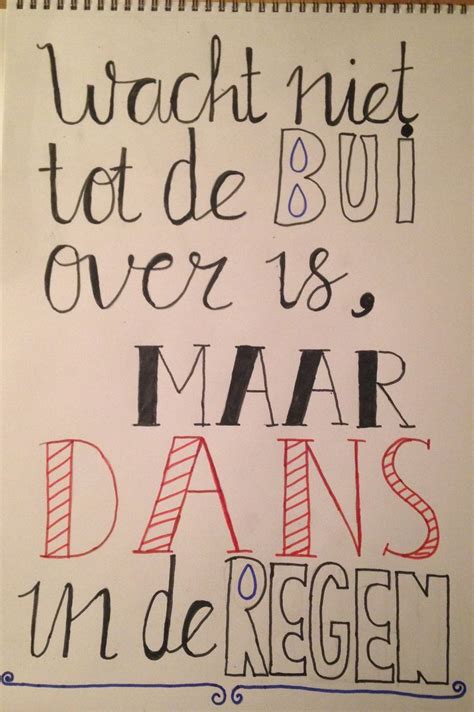 Wacht niet
tot de BUI
over is,
MAAR
DANS
in de REGEN